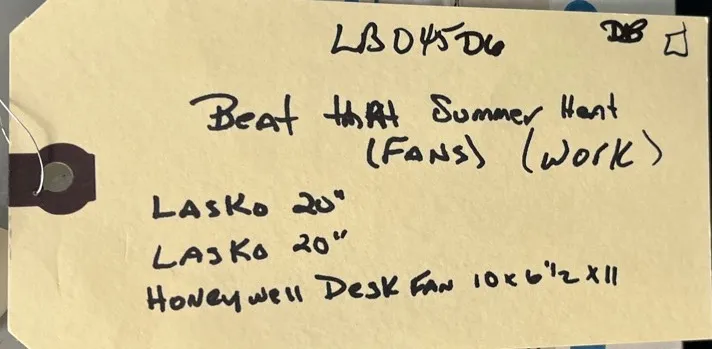 LB045D6 DB
Beat that Summer Heat
(FANS) (WORK)
LASKO 20"
LASKO 20"
Honeywell Desk Fan 10 x 6 1/2 x 11